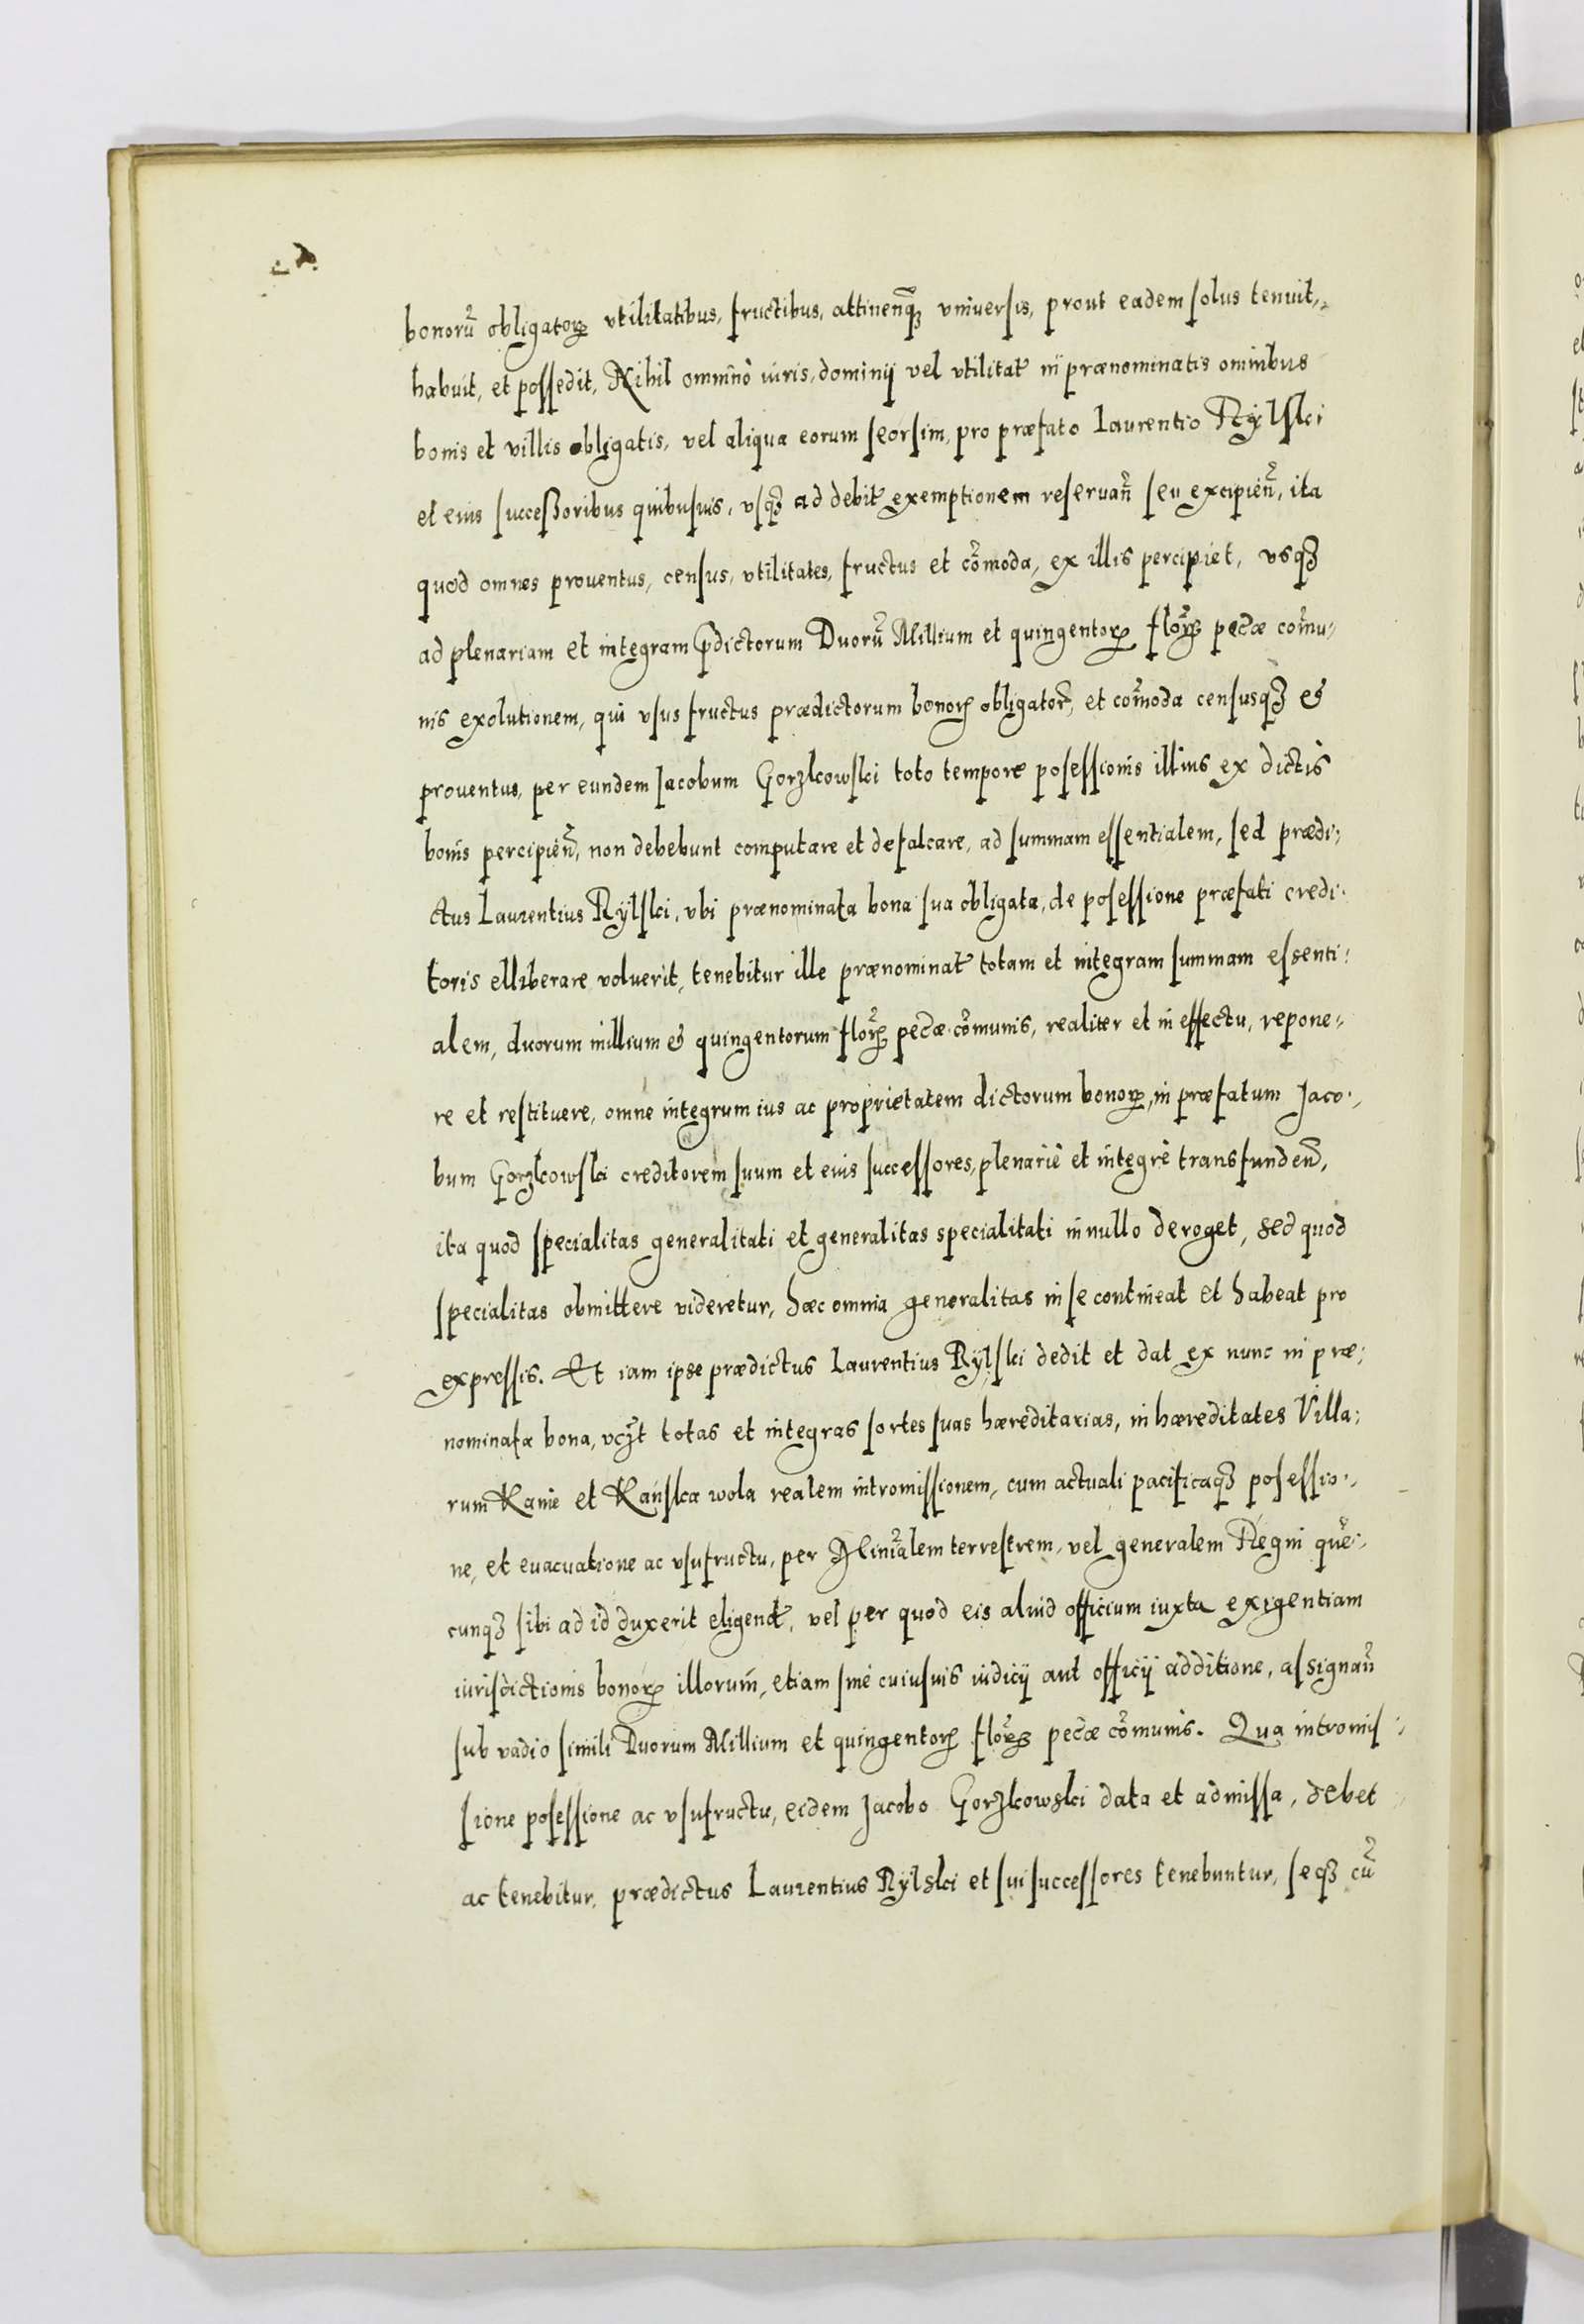 bonorũ obligatoꝝ vtilitatibus, fructibus, attinenq̃ꝫ vniuersis, prout eadem solus tenuit,
habuit, et possedit, Nihil omnino iuris, dominij vel vtilitat̃ in prænominatis omnibus
bonis et villis obligatis, vel aliqua eorum seorsim, pro præfato Laurentio Rÿlski
et eius successoribus quibusuis, vsqꝫ ad debit̃ exemptionem reseruañ seu excipieñ, ita
quod omnes prouentus, census, vtilitates, fructus et cõmoda, ex illis percipiet, vsqꝫ
ad plenariam et integram p̃dictorum Duorũ Millium et quingentoꝝ floꝝ̃ pecæ̃ com̃u-
nis exolutionem, qui vsus fructus prædictorum bonoꝝ obligator̃, et com̃oda censusqꝫ &
prouentus, per eundem Jacobum Gorzkowski toto tempore posessionis illius ex dictis
bonis percipieñ, non debebunt computare et defalcare, ad summam essentialem, sed prædi-
ctus Laurentius Rÿlski, vbi prænominata bona sua obligata, de posessione præfati credi-
toris elliberare voluerit, tenebitur ille prænominat̃ totam et integram summam essenti-
alem, duorum millium & quingentorum floꝝ̃ pecæ̃ cõmunis, realiter et in effectu, repone-
re et restituere, omne integrum ius ac proprietatem dictorum bonoꝝ, in præfatum Jaco-
bum Gorzkowski creditorem suum et eius successores, plenariè et integrè transfundeñ,
ita quod specialitas generalitati et generalitas specialitati in nullo deroget, sed quod
specialitas obmittere videretur, hæc omnia generalitas in se contineat et habeat pro
expressis. Et iam ipse prædictus Laurentius Rÿlski dedit et dat ex nunc in præ-
nominata bona, vcz̃t totas et integras sortes suas hæreditarias, in hæreditates Villa-
rum Kanie et Kańska wola realem intromissionem, cum actuali pacificaqꝫ posessio-
ne, et euacuatione ac vsufructu, per Minĩalem terrestrem, vel generalem Regni quẽ-
cunqꝫ sibi ad id duxerit eligend̃, vel per quod eis aliud officium iuxta exigentiam
iurisdictionis bonoꝝ illorum, etiam sine cuiusuis iudicij aut officij additione, assignañ
sub vadio simili Duorum Millium et quingentoꝝ floꝝ̃ pecæ̃ cõmunis. Qua intromis-
sione posessione ac vsufructu, eidem Jacobo Gorzkowski data et admissa, debet
ac tenebitur, prædictus Laurentius Rÿlski et sui successores tenebuntur, seqꝫ cũ